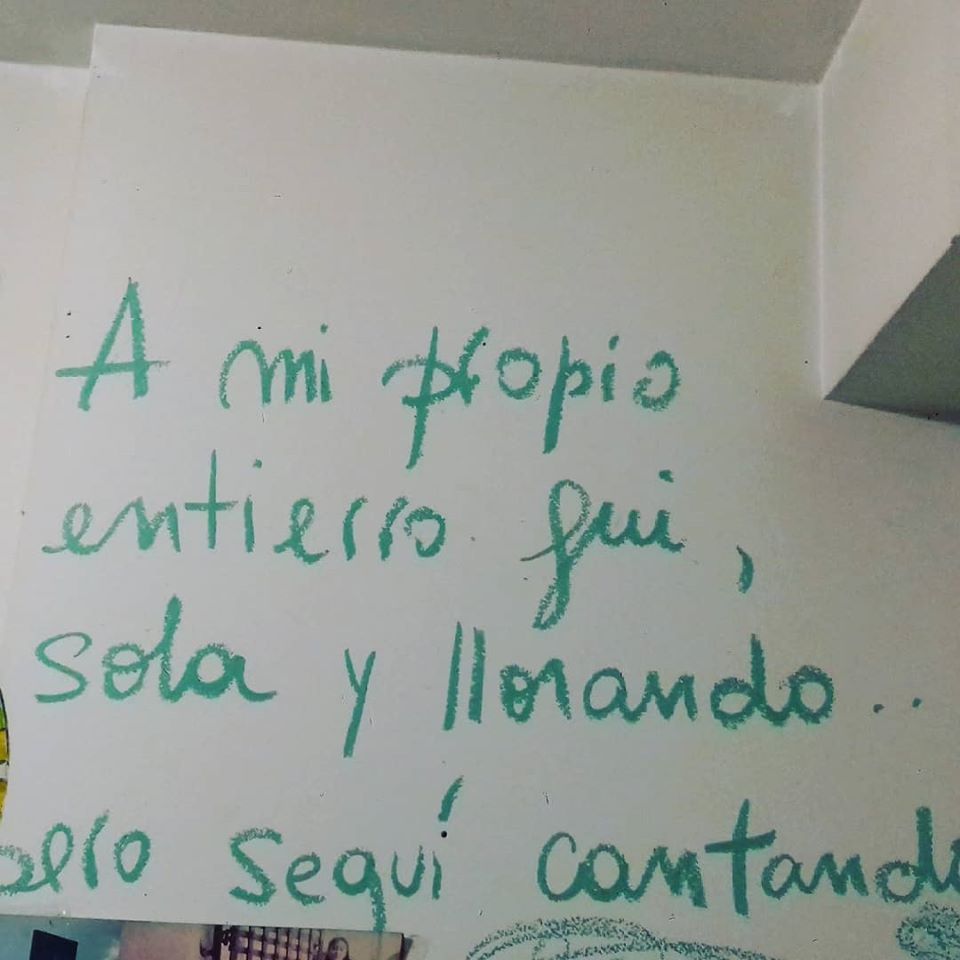 A mi propio
entierro fui,
sola y llorando..
pero seguí cantando